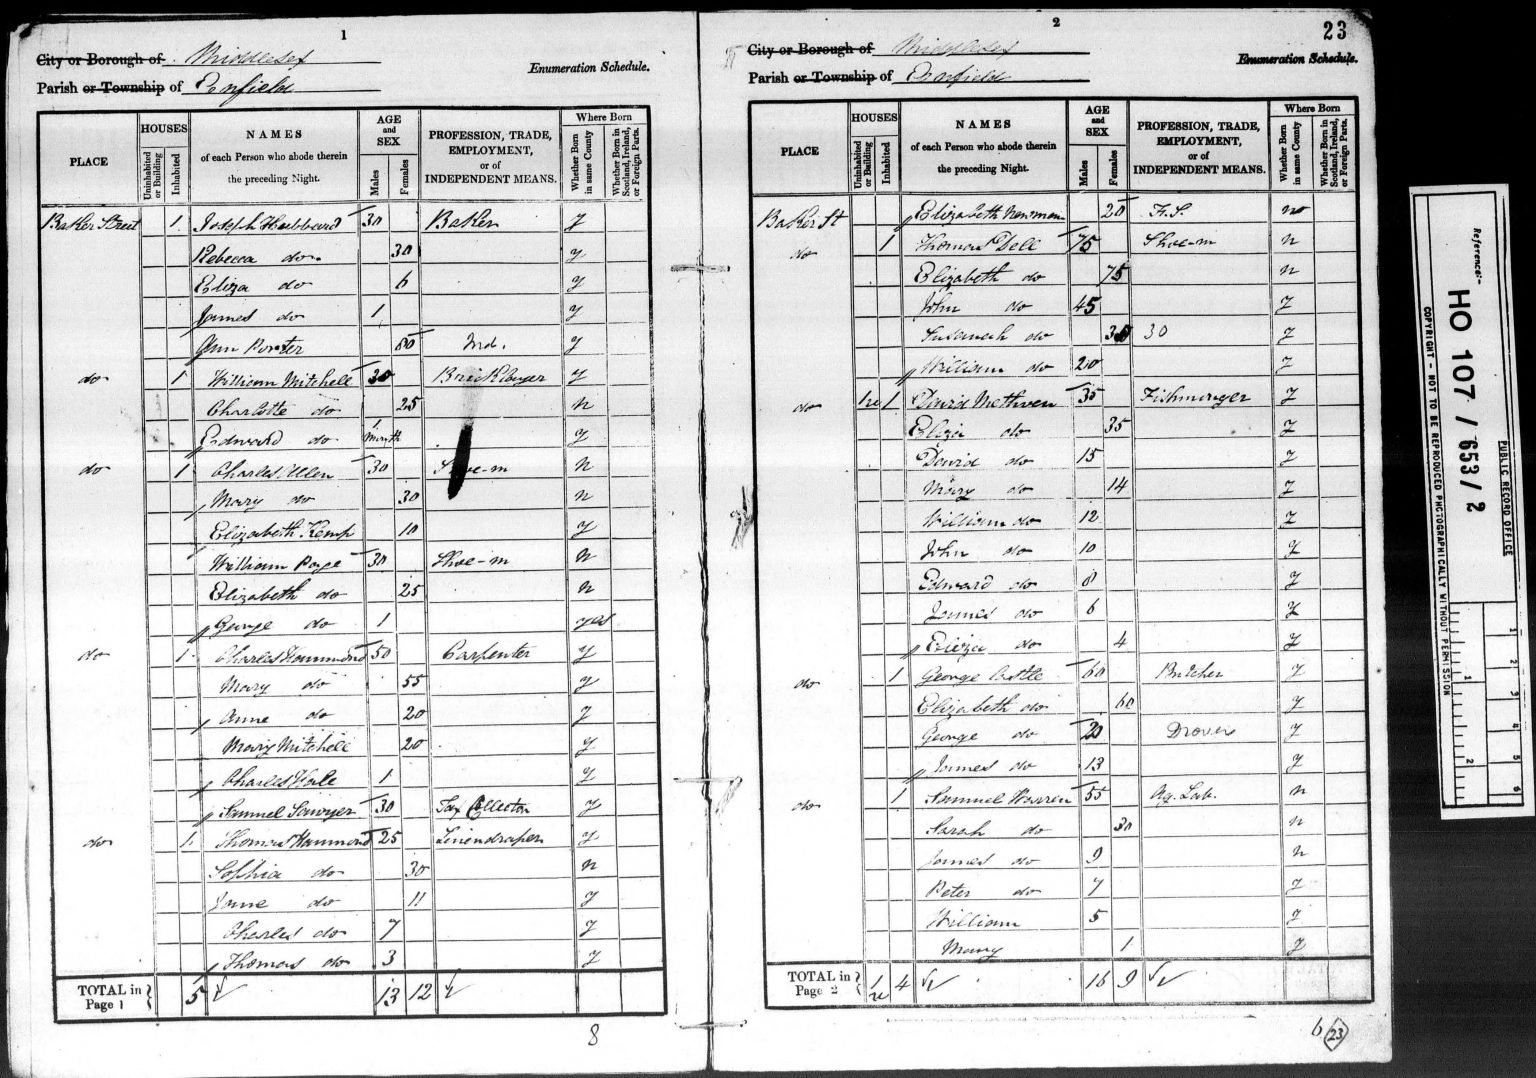 1
City or Borough of Middlesex
Enumeration Schedule.
Parish or Township of Enfield
PLACE
HOUSES
Uninhabited or Building
Inhabited
NAMES
of each Person who abode therein
the preceding Night.
AGE
and
SEX
Males
Females
PROFESSION, TRADE,
EMPLOYMENT,
or of
INDEPENDENT MEANS.
Where Born
Whether Born in same County
Whether Born in Scotland, Ireland, or Foreign Parts.
Baker Street 1 Joseph Hubbard 30 Baker y
Rebecca do 30 y
Eliza do 6 y
James do 1 y
Ann Porter 80 Ind. y
do 1 William Mitchell 30 Bricklayer y
Charlotte do 25 n
Edward do 1 Month y
do 1 Charles Allen 30 Shoe-m n
Mary do 30 n
Elizabeth Kemp 10 y
William Page 30 Shoe-m n
Elizabeth do 25 n
George do 1 yes
do 1 Charles Hammond 50 Carpenter y
Mary do 55 y
Anne do 20 y
Mary Mitchell 20 y
Charles Hale 1 y
Samuel Sawyer 30 Tax Collector y
do 1 Thomas Hammond 25 Linendraper y
Sophia do 30 n
Jane do 11 y
Charles do 7 y
Thomas do 3 y
TOTAL in
Page 1 } 5 13 12
8
2
23
City or Borough of Middlesex
Enumeration Schedule.
Parish or Township of Enfield
PLACE
HOUSES
Uninhabited or Building
Inhabited
NAMES
of each Person who abode therein
the preceding Night.
AGE
and
SEX
Males
Females
PROFESSION, TRADE,
EMPLOYMENT,
or of
INDEPENDENT MEANS.
Where Born
Whether Born in same County
Whether Born in Scotland, Ireland, or Foreign Parts.
Baker St Elizabeth Newman 20 F.S. no
do 1 Thomas Dell 75 Shoe-m n
Elizabeth do 75 n
John do 45 y
Susannah do 30 30 y
William do 20 y
do 1 u 1 David Methven 35 Fishmonger y
Eliza do 35 y
David do 15 y
Mary do 14 y
William do 12 y
John do 10 y
Edward do 8 y
James do 6 y
Eliza do 4 y
do 1 George Cattle 60 Butcher y
Elizabeth do 60 y
George do 20 Drover y
James do 13 y
do 1 Samuel Warren 55 Ag. Lab. n
Sarah do 30 n
James do 9 n
Peter do 7 y
William 5 y
Mary 1 y
TOTAL in
Page 2 } 1 u 4 16 9
6 23
Reference:-
HO 107 / 653 / 2
PUBLIC RECORD OFFICE
COPYRIGHT - NOT TO BE REPRODUCED PHOTOGRAPHICALLY WITHOUT PERMISSION
1 2 3 4 5 6
1 2